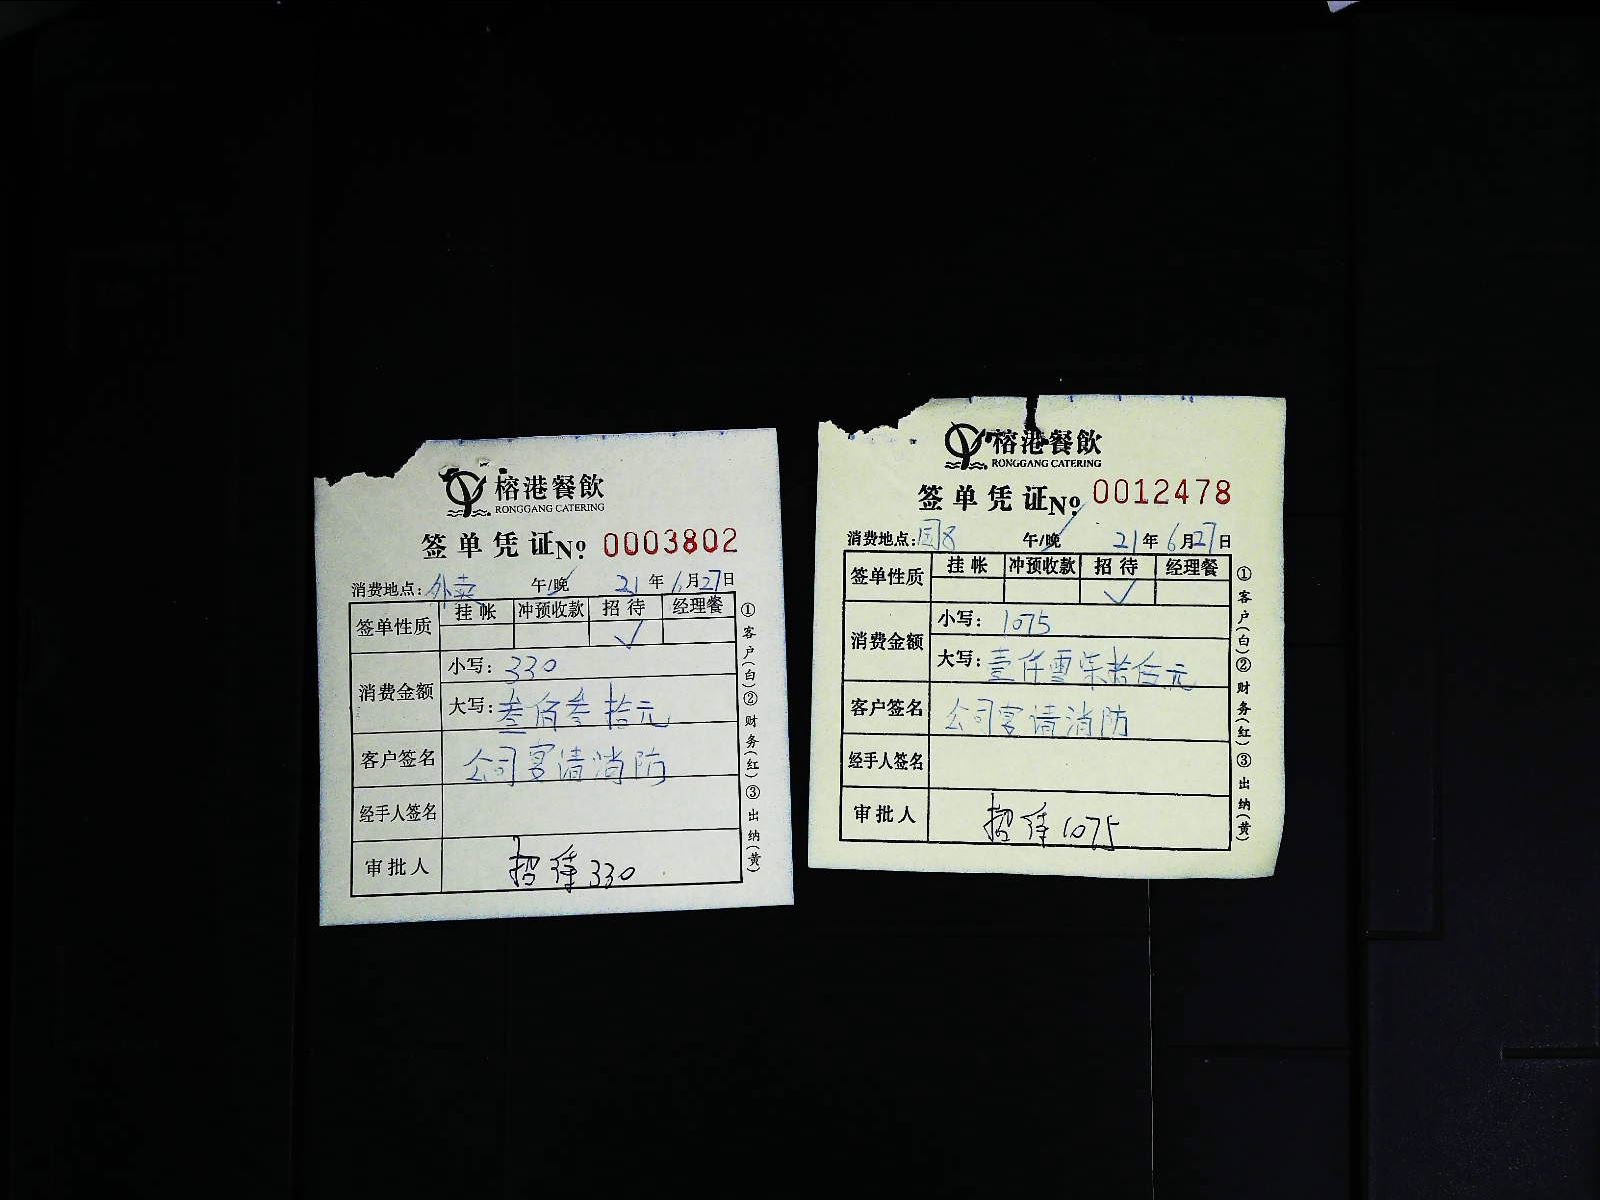 榕港餐飲
RONGGANG CATERING
签单凭证 No 0003802
消费地点: 外卖 午/晚 21年6月27日
签单性质 挂帐 冲预收款 招待 经理餐
✓
消费金额 小写: 330
大写: 叁佰叁拾元
客户签名 公司宴请消防
经手人签名
审批人 招待330
①客户(白)②财务(红)③出纳(黄)
榕港餐飲
RONGGANG CATERING
签单凭证 No 0012478
消费地点: 午/晚 21年6月27日
签单性质 挂帐 冲预收款 招待 经理餐
✓
消费金额 小写: 1075
大写: 壹仟零柒拾伍元
客户签名 公司宴请消防
经手人签名
审批人 招待1075
①客户(白)②财务(红)③出纳(黄)